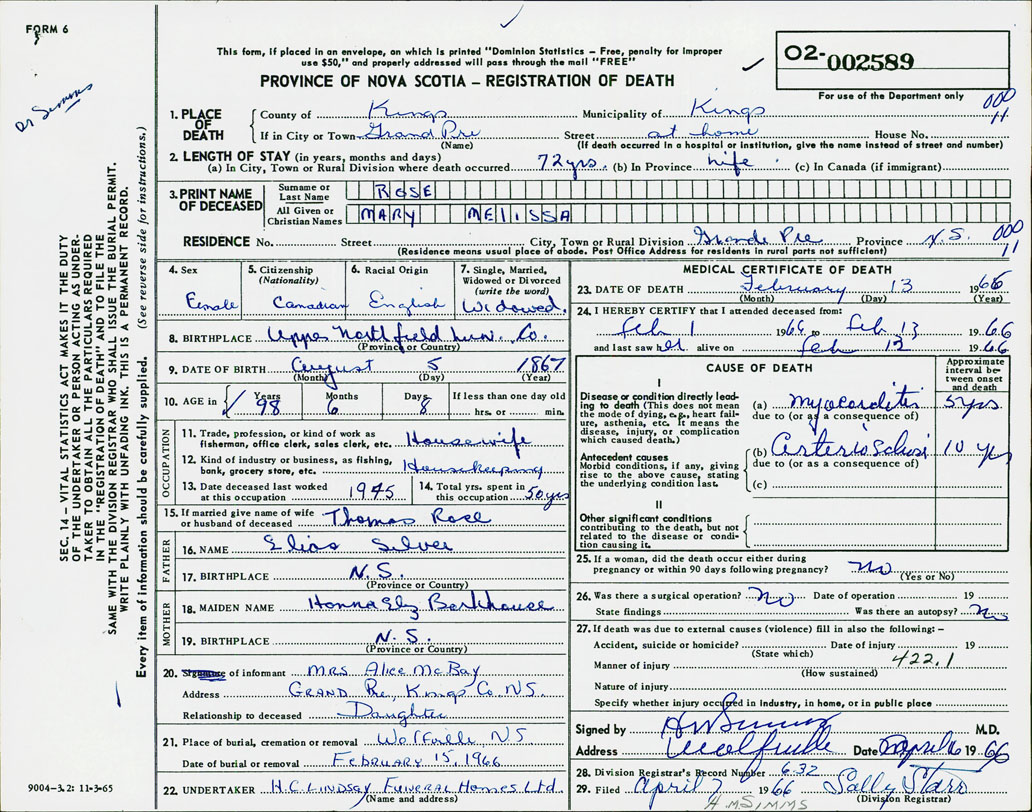 FORM 6
This form, if placed in an envelope, on which is printed "Dominion Statistics – Free, penalty for improper
use $50," and properly addressed will pass through the mail "FREE"
PROVINCE OF NOVA SCOTIA – REGISTRATION OF DEATH
02-002589
For use of the Department only
000
11
Dr Simms
SEC. 14 – VITAL STATISTICS ACT MAKES IT THE DUTY
OF THE UNDERTAKER OR PERSON ACTING AS UNDER-
TAKER TO OBTAIN ALL THE PARTICULARS REQUIRED
IN THE "REGISTRATION OF DEATH" AND TO FILE THE
SAME WITH THE DIVISION REGISTRAR WHO SHALL ISSUE THE BURIAL PERMIT.
WRITE PLAINLY WITH UNFADING INK. THIS IS A PERMANENT RECORD.
Every item of information should be carefully supplied. (See reverse side for instructions.)
1. PLACE OF DEATH
County of Kings Municipality of Kings
If in City or Town Grand Pre Street at home House No.
(Name) (If death occurred in a hospital or institution, give the name instead of street and number)
2. LENGTH OF STAY (in years, months and days)
(a) In City, Town or Rural Division where death occurred 72 yrs. (b) In Province life (c) In Canada (if immigrant)
3. PRINT NAME OF DECEASED
Surname or Last Name ROSE
All Given or Christian Names MARY MELISSA
RESIDENCE No. Street City, Town or Rural Division Grande Pre Province N.S.
000
11
(Residence means usual place of abode. Post Office Address for residents in rural parts not sufficient)
4. Sex
Female
5. Citizenship
(Nationality)
Canadian
6. Racial Origin
English
7. Single, Married, Widowed or Divorced
(write the word)
Widowed.
8. BIRTHPLACE Upper Northfield Lun. Co.
(Province or Country)
9. DATE OF BIRTH August 5 1867
(Month) (Day) (Year)
10. AGE in Years 98 Months 6 Days 8 If less than one day old
hrs. or min.
OCCUPATION
11. Trade, profession, or kind of work as
fisherman, office clerk, sales clerk, etc. Housewife
12. Kind of industry or business, as fishing,
bank, grocery store, etc. Housekeeping
13. Date deceased last worked
at this occupation 1945
14. Total yrs. spent in
this occupation 50 yrs
15. If married give name of wife
or husband of deceased Thomas Rose
FATHER
16. NAME Elias Silver
17. BIRTHPLACE N.S.
(Province or Country)
MOTHER
18. MAIDEN NAME Hanna Elz Barkhouse
19. BIRTHPLACE N.S.
(Province or Country)
20. Signature of informant MRS Alice McBay
Address GRAND Pre, Kings Co. N.S.
Relationship to deceased Daughter
21. Place of burial, cremation or removal Wolfville NS
Date of burial or removal FEBRUARY 15, 1966
22. UNDERTAKER H.C. LINDSAY FUNERAL HOMES Ltd.
(Name and address)
9004-3.2: 11-3-65
MEDICAL CERTIFICATE OF DEATH
23. DATE OF DEATH February 13 1966
(Month) (Day) (Year)
24. I HEREBY CERTIFY that I attended deceased from:
Feb 1 1966 to Feb 13 1966
and last saw her alive on Feb 12 1966
CAUSE OF DEATH
Approximate interval between onset and death
I
Disease or condition directly lead-
ing to death (This does not mean
the mode of dying, e.g., heart fail-
ure, asthenia, etc. It means the
disease, injury, or complication
which caused death.)
(a) myocarditis 5 yrs
due to (or as a consequence of)
Antecedent causes
Morbid conditions, if any, giving
rise to the above cause, stating
the underlying condition last.
(b) 10 yrs
due to (or as a consequence of)
(c)
II
Other significant conditions
contributing to the death, but not
related to the disease or condi-
tion causing it.
25. If a woman, did the death occur either during
pregnancy or within 90 days following pregnancy? No
(Yes or No)
26. Was there a surgical operation? No Date of operation 19
State findings Was there an autopsy? No
27. If death was due to external causes (violence) fill in also the following: –
Accident, suicide or homicide? Date of injury 19
(State which)
Manner of injury 422.1
(How sustained)
Nature of injury
Specify whether injury occurred in industry, in home, or in public place
Signed by M.D.
Address Wolfville Date April 6 1966
28. Division Registrar's Record Number 632
29. Filed April 7 1966 Sally Starr
(Division Registrar)
A M SIMMS